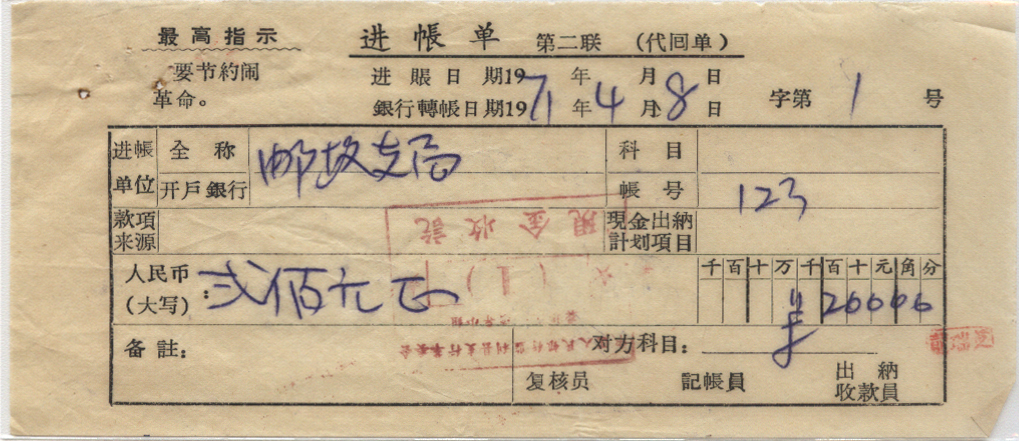 最高指示
要节約闹
革命。
进帳单 第二联 (代回单)
进賬日期19 年 月 日
銀行轉帳日期1971年4月8日 字第1号
进帳单位 全称 邮坂支局 科目
开戶銀行 帳号 123
款項来源 現金出納計划項目
人民币(大写): 弍佰元正 千百十万千百十元角分
¥20000
备註: 对方科目:
复核员 記帳員 出納收款員
現金收訖